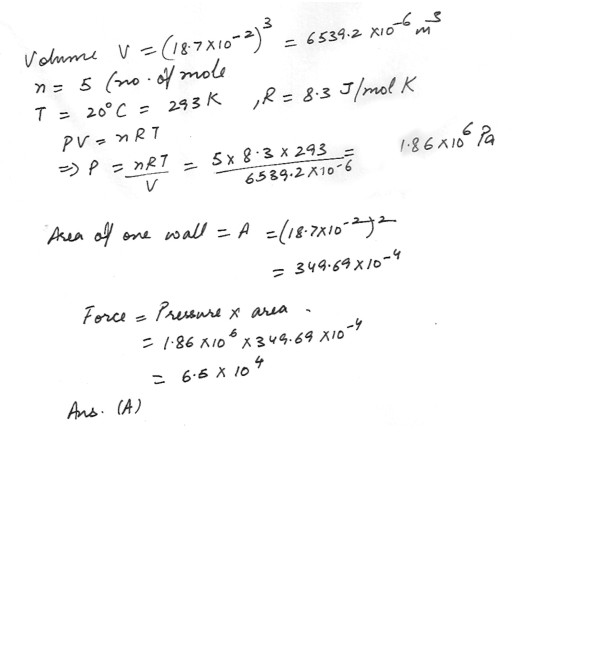 Volume V = (18.7 x 10^-2)^3 = 6539.2 x 10^-6 m^3
n = 5 (no. of mole
T = 20°C = 293 K , R = 8.3 J/mol K
PV = nRT
=> P = nRT/V = 5 x 8.3 x 293 / 6539.2 x 10^-6 = 1.86 x 10^6 Pa
Area of one wall = A = (18.7 x 10^-2)^2
= 349.69 x 10^-4
Force = Pressure x area .
= 1.86 x 10^6 x 349.69 x 10^-4
= 6.5 x 10^4
Ans. (A)